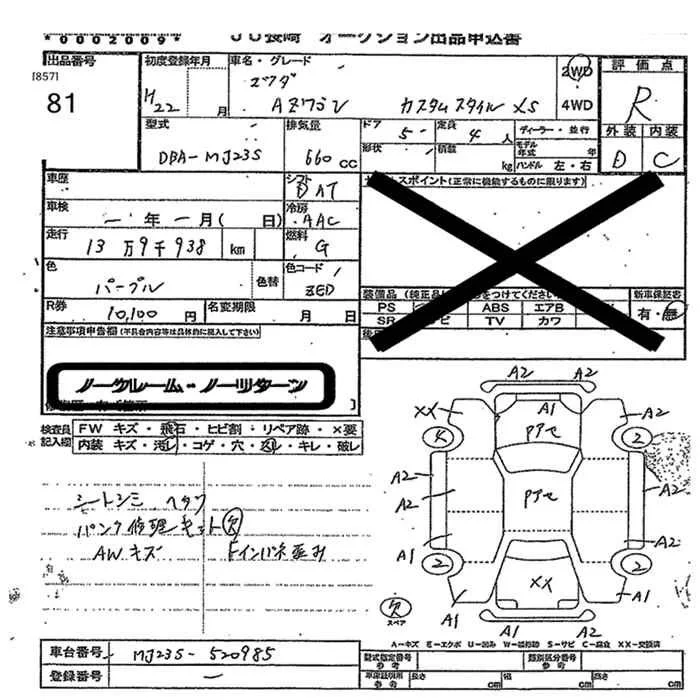 *0002009* JU長崎 オークション出品申込書
出品番号 初度登録年月 車名・グレード 2WD 評価点
[857]
81 H22 月 マツダ AZワゴン カスタムスタイル XS 4WD R
外装 内装
D C
型式 排気量 ドア 5 定員 4 人 ディーラー・並行
DBA-MJ23S 660 cc 形状 積載 kg モデル年式 年
ハンドル 左・右
車歴 シフト DAT セールスポイント(正常に機能するものに限ります)
車検 年 月( 日) 冷房 AAC
走行 13万9千938 km 燃料 G
色 パープル 色替 色コード ZED
装備品 新車保証書
PS ABS エアB 有・無
SR TV カワ
R券 10,100円 名変期限 月 日
注意事項申告欄(不具合内容等は具体的に記入して下さい)
ノークレーム・ノーリターン
検査員記入欄 FW キズ・飛石・ヒビ割・リペア跡・×要
内装 キズ・汚レ・コゲ・穴・キレ・破レ
シートシミ ヘタリ
パンク修理キット欠
AWキズ Fインパネ歪み
A2 A2
XX A1 A2
4 Pアセ 2
A2 A2
A2 Pアセ A2
A1 A2
2 XX 2
A1 A1
A1 A2
欠
スペア
A-キズ E-エクボ U-凹み W-補修跡 S-サビ C-腐食 XX-交換済
車台番号 MJ23S-520985 型式指定番号 参考 類別区分番号 参考
登録番号 車庫証明用 参考 長さ cm 幅 cm 高さ cm